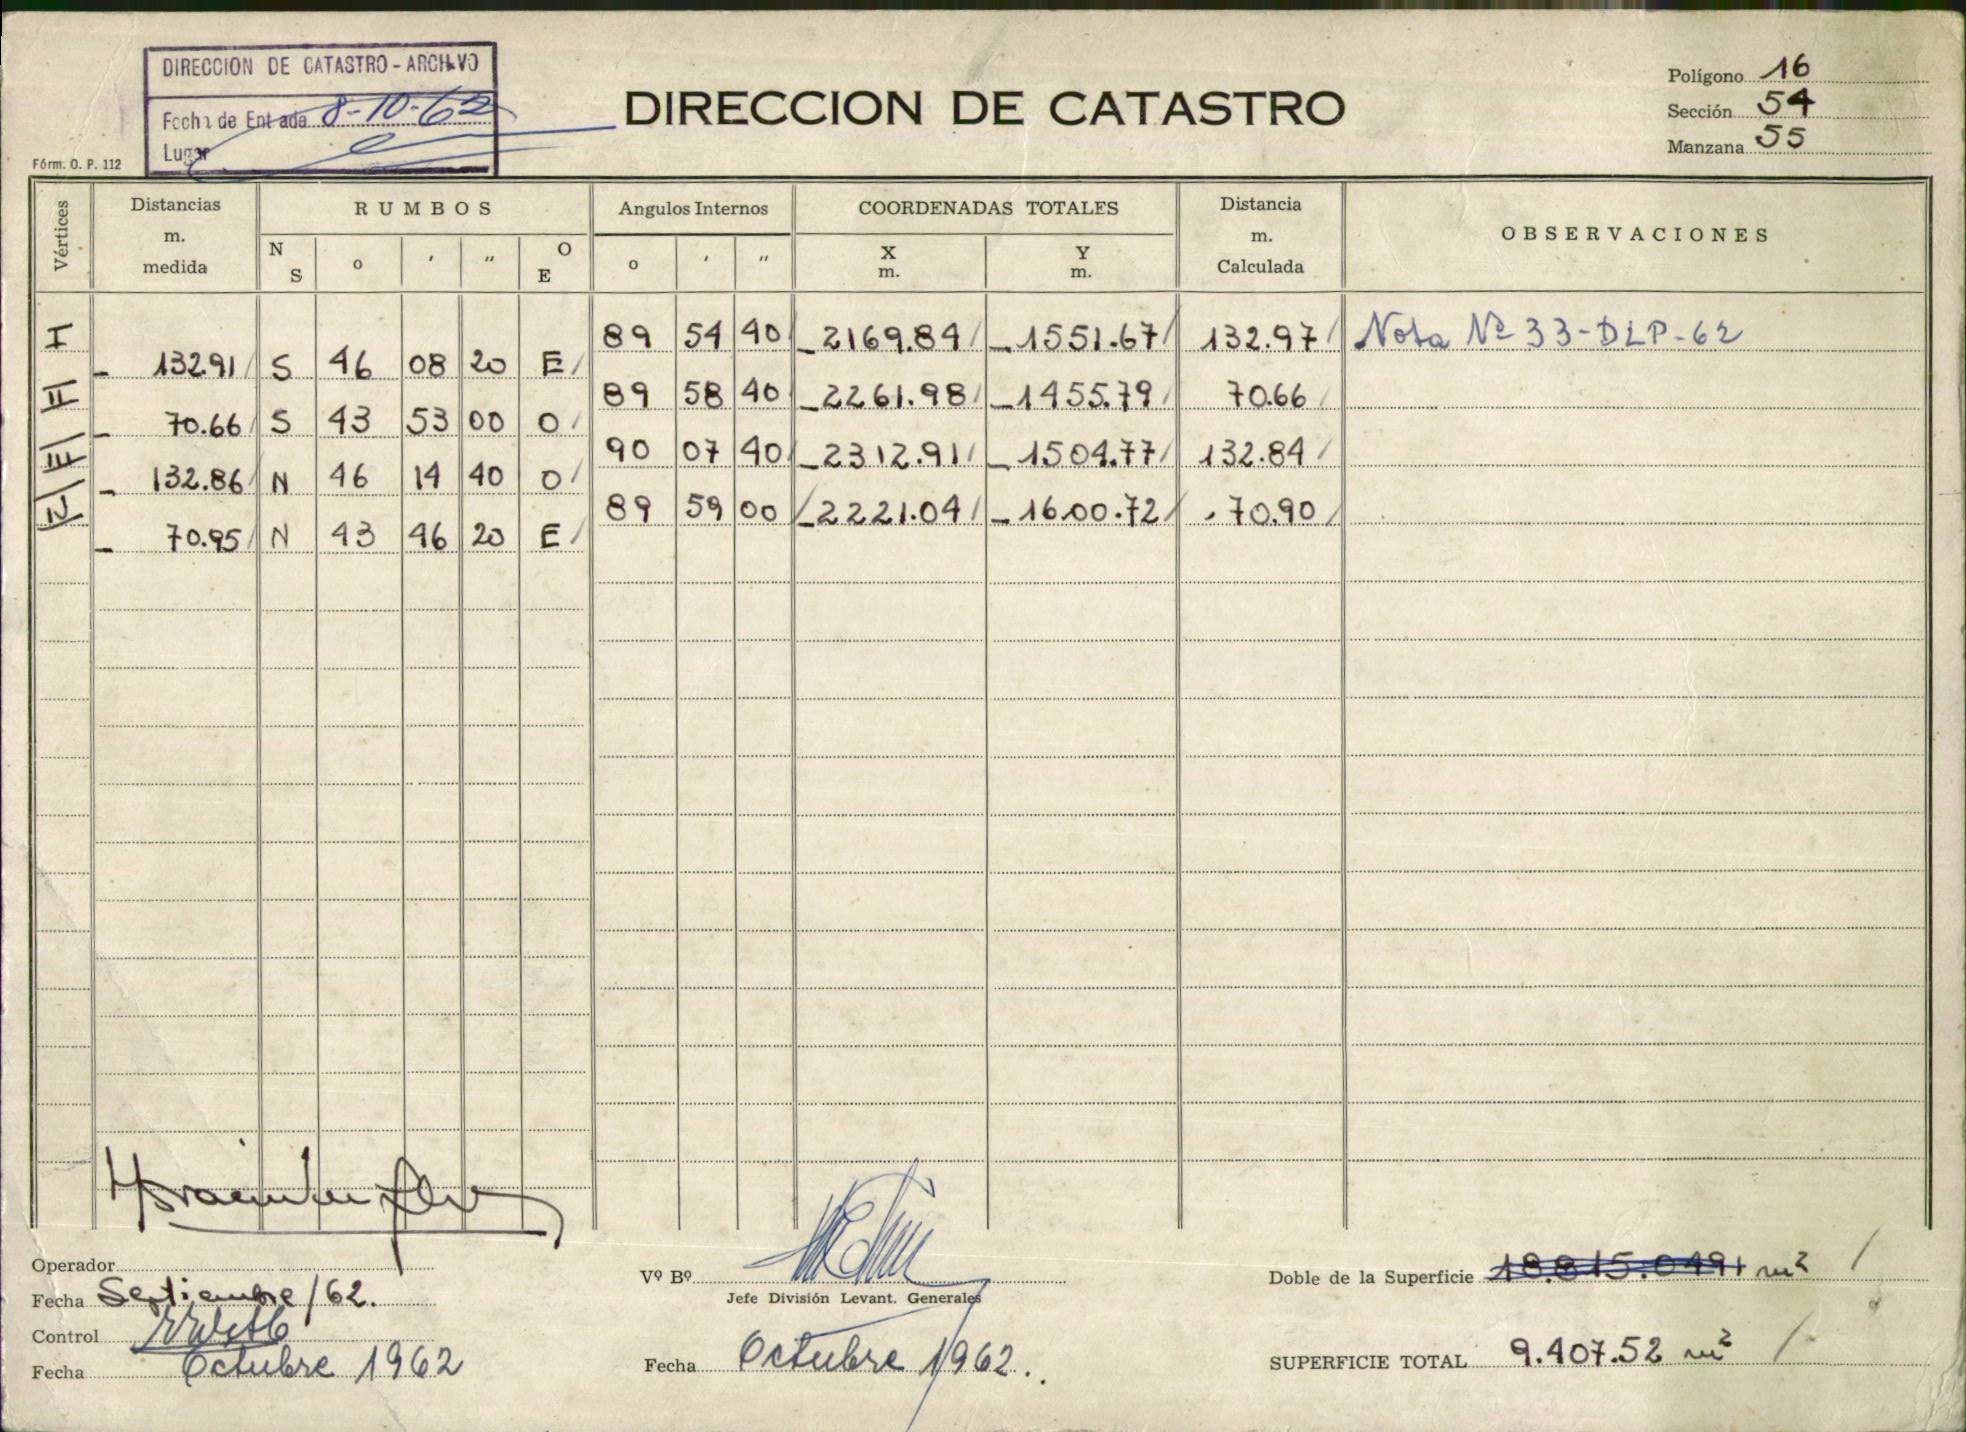 DIRECCION DE CATASTRO - ARCHIVO
Fecha de Entrada 8-10-62
Lugar
Fórm. O. P. 112
DIRECCION DE CATASTRO
Polígono 16
Sección 54
Manzana 55
Vértices Distancias m. medida RUMBOS Angulos Internos COORDENADAS TOTALES Distancia m. Calculada OBSERVACIONES
N S o ′ ″ O E o ′ ″ X m. Y m.
I 89 54 40 -2169.84 -1551.67 132.97 Nota Nº 33-DLP-62
- 132.91 S 46 08 20 E
II 89 58 40 -2261.98 -1455.79 70.66
- 70.66 S 43 53 00 O
III 90 07 40 -2312.91 -1504.77 132.84
- 132.86 N 46 14 40 O
IV 89 59 00 -2221.04 -1600.72 70.90
- 70.95 N 43 46 20 E
Operador
Fecha Septiembre/62.
Control
Fecha Octubre 1962
Vº Bº
Jefe División Levant. Generales
Fecha Octubre 1962.
Doble de la Superficie 18.815.0491 m²
SUPERFICIE TOTAL 9.407.52 m²